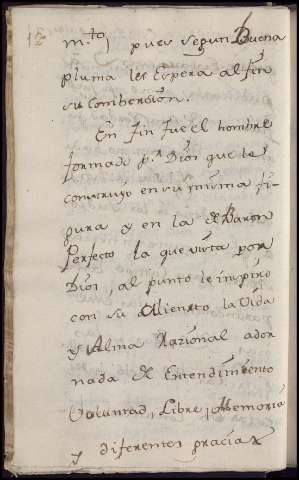 12
m.tos pues segun Buena
pluma les Espera al fin
su combercion.
En fin fue el hombre
formado p.r Dios que le
construyo en su misma fi-
gura y en la de Baron
Perfecto la que vista por
Dios, al punto le inspiro
con su Aliento, la Vida
y Alma Razional ador
nada de Entendimiento
Voluntad, Libre, Memoria
y diferentes gracias